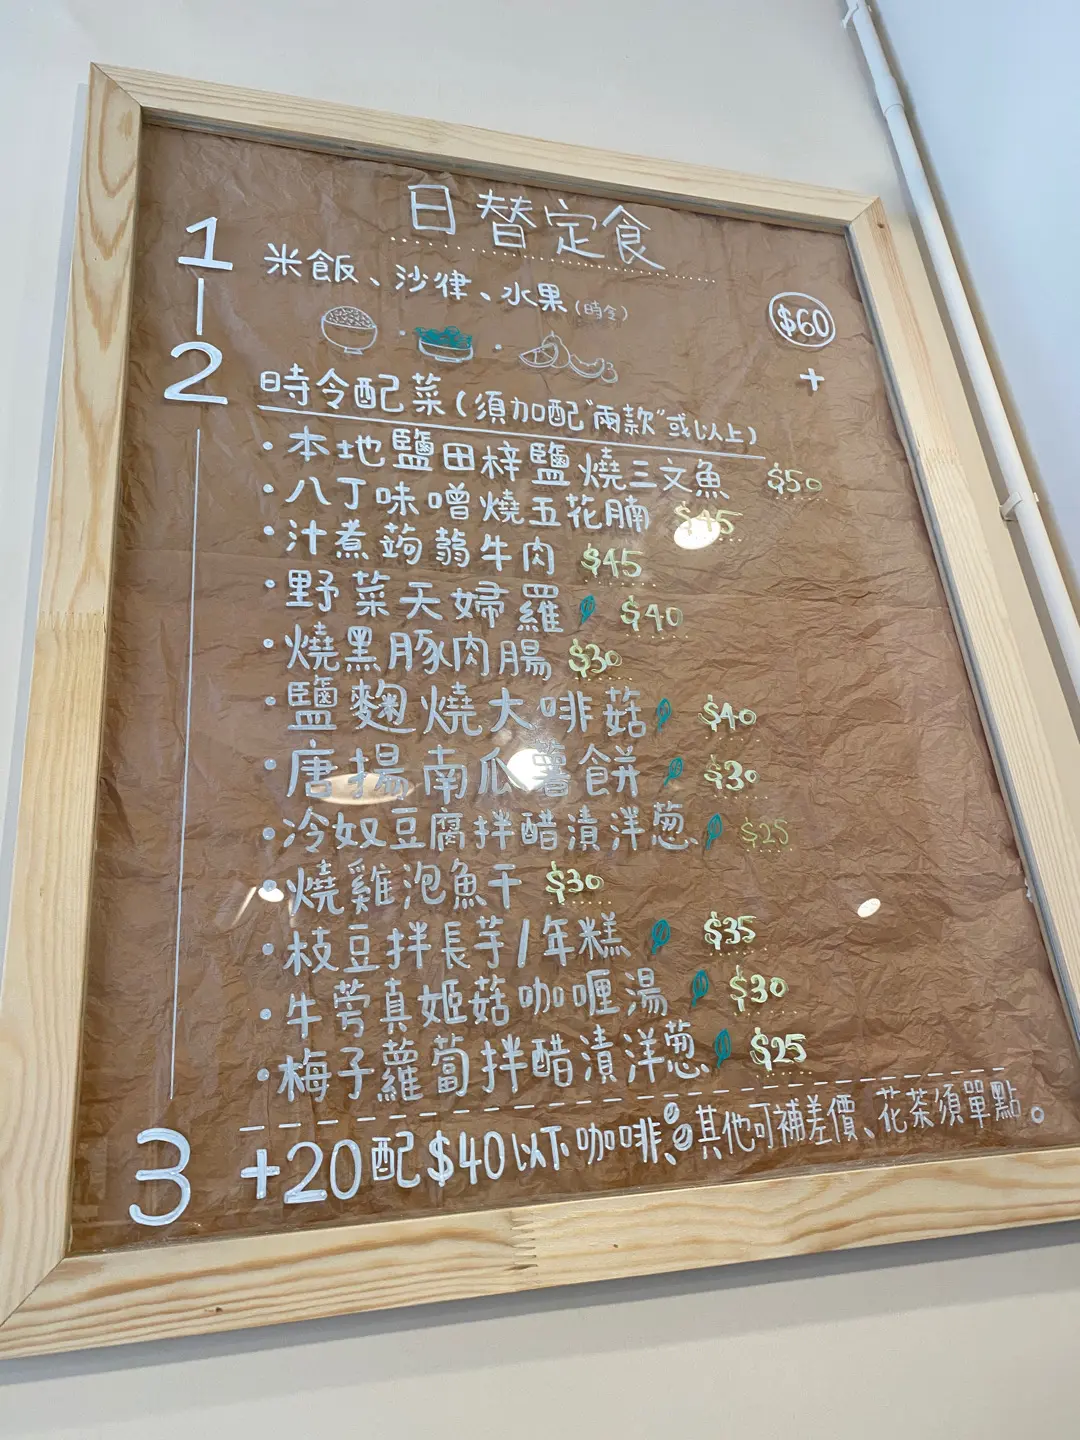 日替定食
1 米飯、沙律、水果(時令)
$60
+
2 時令配菜(須加配"兩款"或以上)
·本地鹽田梓鹽燒三文魚 $50
·八丁味噌燒五花腩 $45
·汁煮蒟蒻牛肉 $45
·野菜天婦羅 $40
·燒黑豚肉腸 $30
·鹽麴燒大啡菇 $40
·唐揚南瓜薯餅 $30
·冷奴豆腐拌醋漬洋葱 $25
·燒雞泡魚干 $30
·枝豆拌長芋/年糕 $35
·牛蒡真姬菇咖喱湯 $30
·梅子蘿蔔拌醋漬洋葱 $25
3 +20配$40以下咖啡、其他可補差價、花茶須單點。